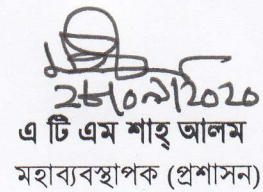 ২৮/০৯/২০২০
এ টি এম শাহ্ আলম
মহাব্যবস্থাপক (প্রশাসন)